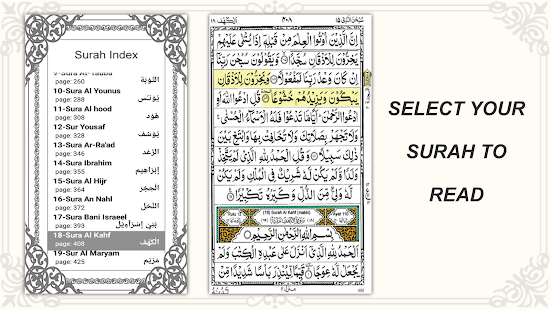 Surah Index
9-Sura Al-Tauba
page: 260
التَّوْبَة
10-Sura Al Younus
يُوْنُس
11-Sura Al hood
page: 308
هُوْد
12-Sur Yousaf
page: 328
يُوْسُف
13-Sura Ar-Ra'ad
page: 346
الرَّعْد
14-Sura Ibrahim
page: 355
إبْرَاهِيْم
15-Sura Al Hijr
الْحِجْر
16-Sura An Nahl
page: 372
النَّحْل
17-Sura Bani Israeel
page: 393
بَنِیْ اِسْرَآءِيْل
18-Sura Al Kahf
page: 408
الْكَهْف
19-Sur Al Maryam
page: 425
مَرْيَم
الكهف ١٨
۴۰۸
سبحن الذی ١٥
اِنَّ الَّذِيْنَ اُوْتُوا الْعِلْمَ مِنْ قَبْلِهٖٓ اِذَا يُتْلٰى عَلَيْهِمْ
يَخِرُّوْنَ لِلْاَذْقَانِ سُجَّدًا وَّيَقُوْلُوْنَ سُبْحٰنَ رَبِّنَآ
اِنْ كَانَ وَعْدُ رَبِّنَا لَمَفْعُوْلًا وَيَخِرُّوْنَ لِلْاَذْقَانِ
يَبْكُوْنَ وَيَزِيْدُهُمْ خُشُوْعًا قُلِ ادْعُوا اللّٰهَ اَوِ
ادْعُوا الرَّحْمٰنَ اَيًّا مَّا تَدْعُوْا فَلَهُ الْاَسْمَآءُ الْحُسْنٰى
وَلَا تَجْهَرْ بِصَلَاتِكَ وَلَا تُخَافِتْ بِهَا وَابْتَغِ بَيْنَ
ذٰلِكَ سَبِيْلًا وَقُلِ الْحَمْدُ لِلّٰهِ الَّذِيْ لَمْ يَتَّخِذْ
وَلَدًا وَّلَمْ يَكُنْ لَّهٗ شَرِيْكٌ فِى الْمُلْكِ وَلَمْ يَكُنْ
لَّهٗ وَلِىٌّ مِّنَ الذُّلِّ وَكَبِّرْهُ تَكْبِيْرًا
Ruku 12
(18) Surah Al Kahf (makki)
Ayat 110
بِسْمِ اللّٰهِ الرَّحْمٰنِ الرَّحِيْمِ
اَلْحَمْدُ لِلّٰهِ الَّذِيْٓ اَنْزَلَ عَلٰى عَبْدِهِ الْكِتٰبَ وَلَمْ
يَجْعَلْ لَّهٗ عِوَجًا قَيِّمًا لِّيُنْذِرَ بَاْسًا شَدِيْدًا مِّنْ
SELECT YOUR
SURAH TO
READ